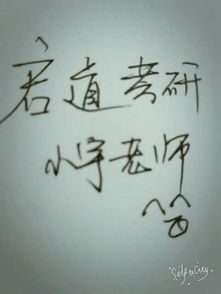 君道考研
小宇老师
Self & City